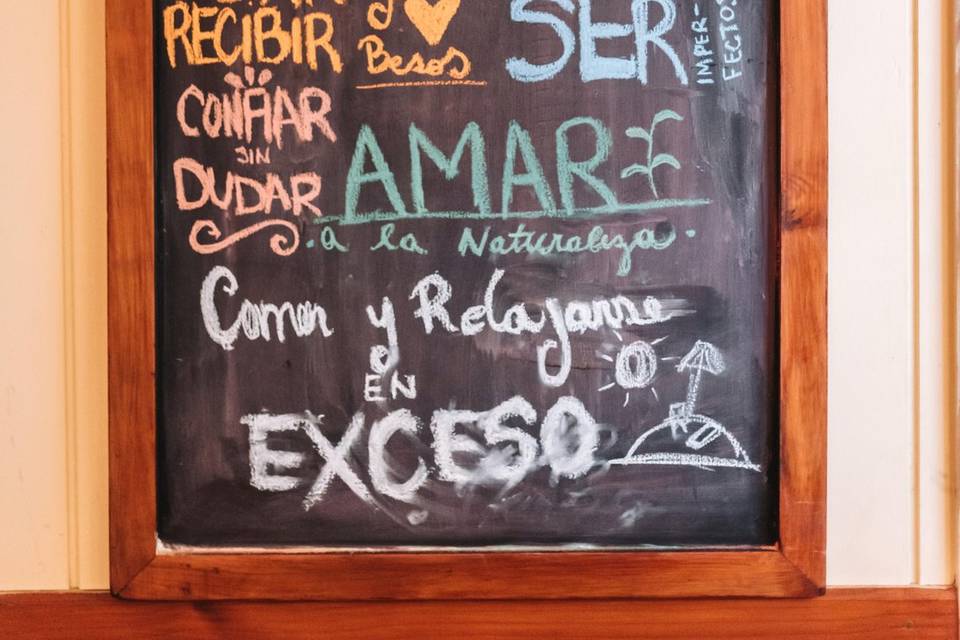 RECIBIR
y
Besos
SER
IMPER-
FECTOS
CONFIAR
SIN
DUDAR
AMAR
a la Naturaleza.
Comer y Relajarse
EN
EXCESO